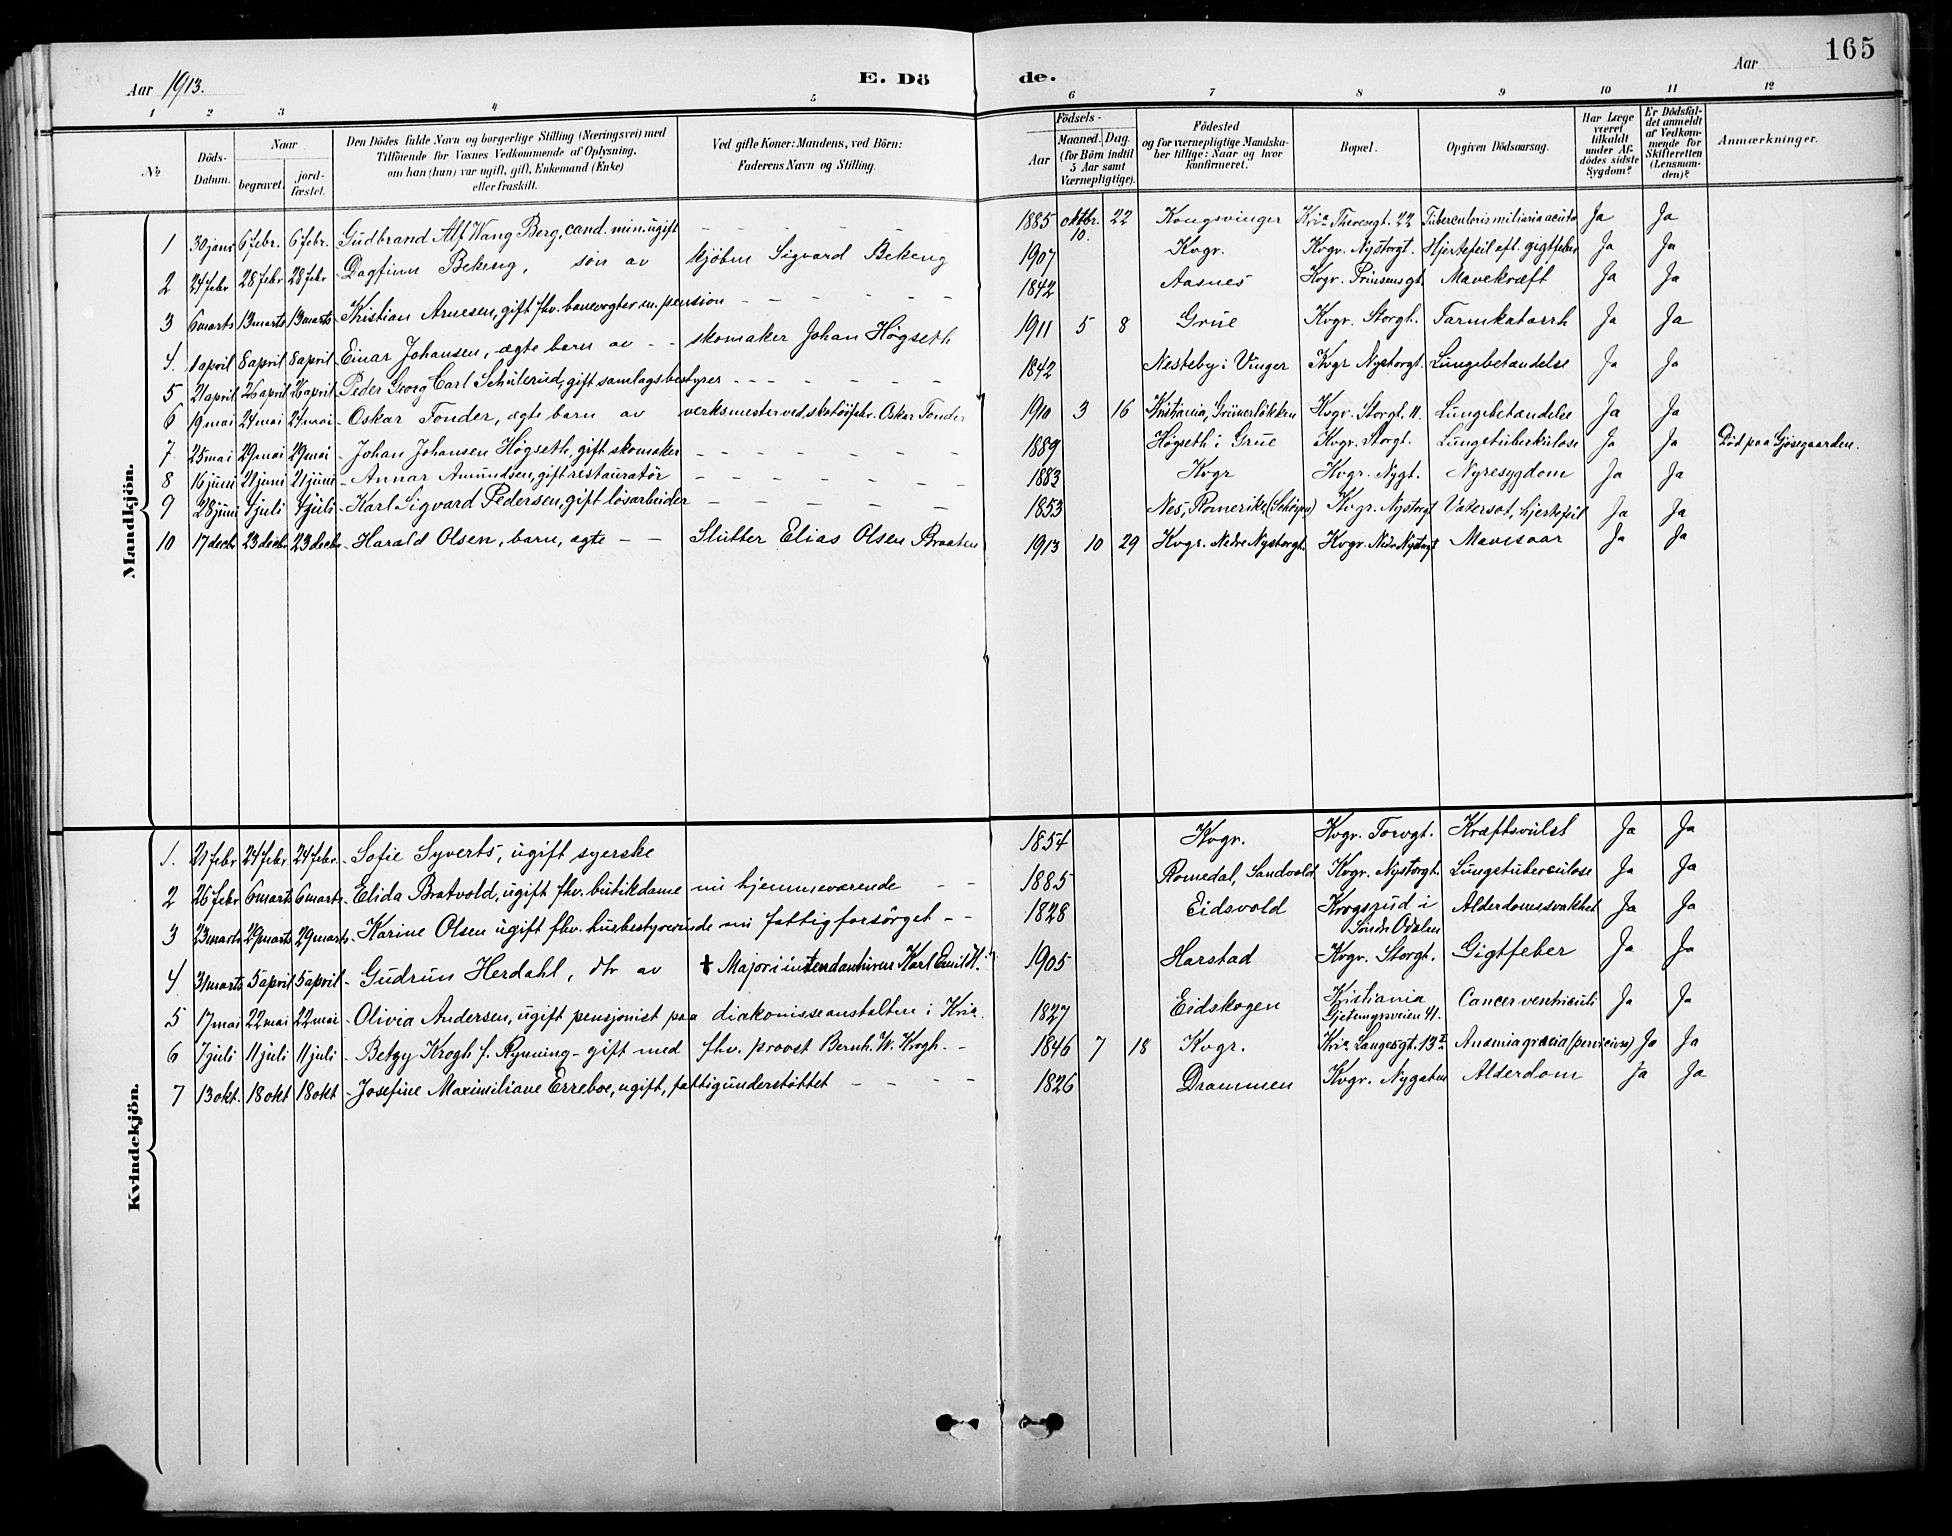 165
Aar 1913. E. Dö de. Aar
1 2 3 4 5 6 7 8 9 10 11 12
No
Döds-Datum.
Naar
begravet.
jord-fæstet.
Den Dödes fulde Navn og borgerlige Stilling (Næringsvei) med
Tilföiende för Voxnes Vedkommende af Oplysning,
om han (hun) var ugift, gift, Enkemand (Enke)
eller fraskilt.
Ved gifte Koner: Mandens, ved Börn:
Faderens Navn og Stilling.
Födsels-
Aar
Maaned. Dag.
(for Börn indtil
5 Aar samt
Værnepligtige).
Födested
og for værnepligtige Mandska-
ber tillige: Naar og hvor
konfirmeret.
Bopæl.
Opgiven Dödsaarsag.
Har Læge
været
tilkaldt
under Af-
dödes sidste
Sygdom?
Er Dödsfal-
det anmeldt
af Vedkom-
mende for
Skifteretten
(Lensman-
den)?
Anmærkninger.
Mandkjön.
1 30 janr 6 febr. 6 febr. Gudbrand Alf Wang Berg, cand. min. ugift - - - - - - 1885 oktbr. 10. 22 Kongsvinger Kria Theresgt. 22 Tuberculosis miliaria acuta Ja Ja
2 24 febr 28 febr 28 febr - Dagfinn Bekeng, søn av kjøbm Sigvard Bekeng 1907 Kvgr. Kvgr. Nystorgt. Hjertefeil eft. gigtfeber Ja Ja
3 6 marts 13 marts 13 marts - Kristian Arnesen, gift fhv. banevogter m. pension - - - - - 1842 Aasnes Kvgr. Prinsensgt. Mavekræft Ja Ja
4. 1 april 8 april 8 april - Einar Johansen, ægte barn av - - skomaker Johan Högseth 1911 5 8 Grue Kvgr. Storgt. Tarmkatarrh Ja Ja
5 21 april 26 april 26 april - Peder Georg Carl Schulerud, gift samlagsbestyrer - - - - - - - 1842 Nesteby i Vinger Kvgr Nystorgt. Lungebetændelse Ja Ja
6 19 mai 24 mai 24 mai - Oskar Tonder, ægte barn av verksmester ved skotöifabr. Oskar Tonder 1910 3 16 Kristiania, Grünerløkken Kvgr. Storgt. 11. Lungebetændelse Ja Ja
7 25 mai 29 mai 29 mai - Johan Johansen Högseth, gift skomaker - - - - - - 1889 Högseth i Grue Kvgr. Storgt. Lungetuberkulose Ja Ja Död paa Gjøsegaarden.
8 16 juni 21 juni 21 juni - Annar Amundsen, gift restauratør - - - - - - 1883 Kvgr Kvgr. Nygt. Nyresygdom Ja Ja
9 28 juni 4 juli 4 juli - Karl Sigvard Pedersen, gift løsarbeider - - - - - - 1853 Nes, Romerike Kvgr. Nystorgt Vatersot, hjertefeil Ja Ja
10 17 decbr 23 decbr 23 decbr - Harald Olsen, barn, ægte - - Slutter Elias Olsen Braaten 1913 10 29 Kvgr. Nedre Nystorgt. Kvgr. Nedre Nystorgt Mavesaar Ja Ja
Kvindekjön.
1. 21 febr 24 febr 24 febr. - Sofie Syverts, ugift syerske 1854 Kvgr. Kvgr. Torvgt. Kræftsvulst Ja Ja
2 26 febr 6 marts 6 marts - Elida Bratvold, ugift fhv. butikdame nu hjemmeværende - - 1885 Romedal, Sandvold Kvgr. Nystorgt. Lungetuberculose Ja Ja
3 23 marts 29 marts 29 marts - Karine Olsen ugift fhv. husbestyrerinde nu fattigforsörget - - 1828 Eidsvold i Söndre Odalen Alderdomssvakhet Ja Ja
4 31 marts 5 april 5 april - Gudrun Herdahl, dtr av † Major i intendanturen Karl Emil H. 1905 Harstad Kvgr. Storgt. Gigtfeber Ja Ja
5 17 mai 22 mai 22 mai - Olivia Andersen, ugift pensjonist paa diakonisseanstalten i Kria. 1827 Eidskogen Kristiania 41. Cancer ventriculi Ja Ja
6 7 juli 11 juli 11 juli - Betzy Krogh f. Rynning - gift med fhv. provst Bernh. W. Krogh. - 1846 7 18 Kvgr. Kria Langesgt. 13 I Anæmia gravia (perniciosa) Ja Ja
7 13 okt. 18 okt 18 okt - Josefine Maximiliane Erreboe, ugift, fattigunderstøttet - - - - 1826 Drammen Kvgr. Nygaten Alderdom Ja Ja